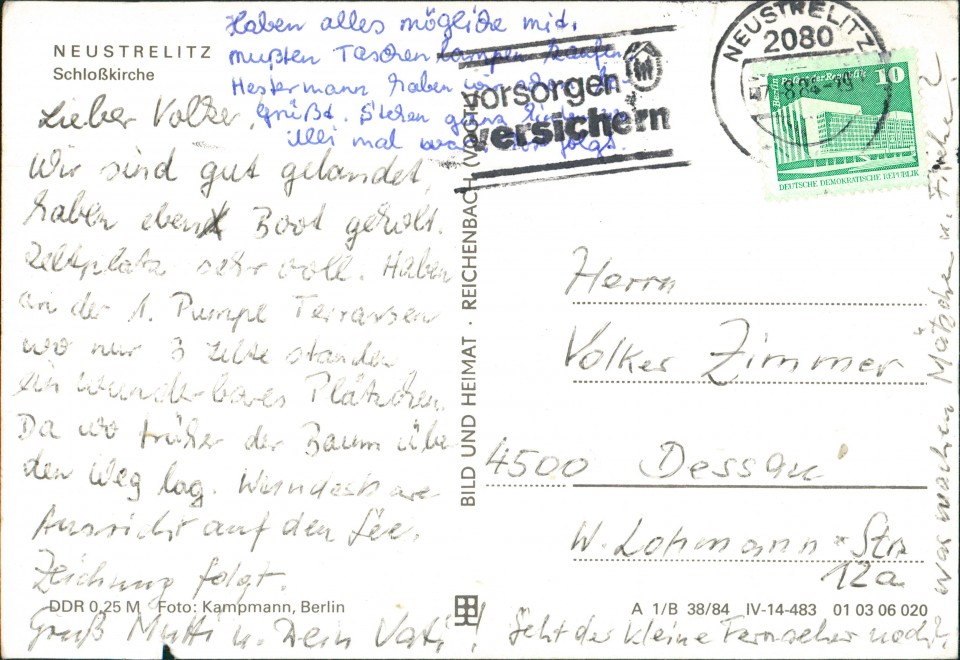 NEUSTRELITZ
Schloßkirche
Haben alles mögliche mit.
mußten Taschenlampen kaufen
Hestermann haben wir
grüßt. Stehen ganz
illi mal folgt.
Lieber Volker,
Wir sind gut gelandet,
haben eben Boot geholt.
Zeltplatz sehr voll. Haben
an der 1. Pumpe Terrassen
wo nur 3 Zelte standen
ein wunderbares Plätzchen.
Da wo früher der Baum über
den Weg lag. Wunderbare
Aussicht auf den See.
Zeichnung folgt.
Gruß Mutti u. Dein Vati!
Geht der kleine Fernseher noch?
was machen Mätzchen u. Fische?
DDR 0,25 M Foto: Kampmann, Berlin
BILD UND HEIMAT · REICHENBACH (VOGTL)
vorsorgen
versichern
NEUSTRELITZ
2080
10
Berlin Palast der Republik
DEUTSCHE DEMOKRATISCHE REPUBLIK
Herrn
Volker Zimmer
4500 Dessau
W.Lohmann-Str.
12a
A 1/B 38/84 IV-14-483 01 03 06 020